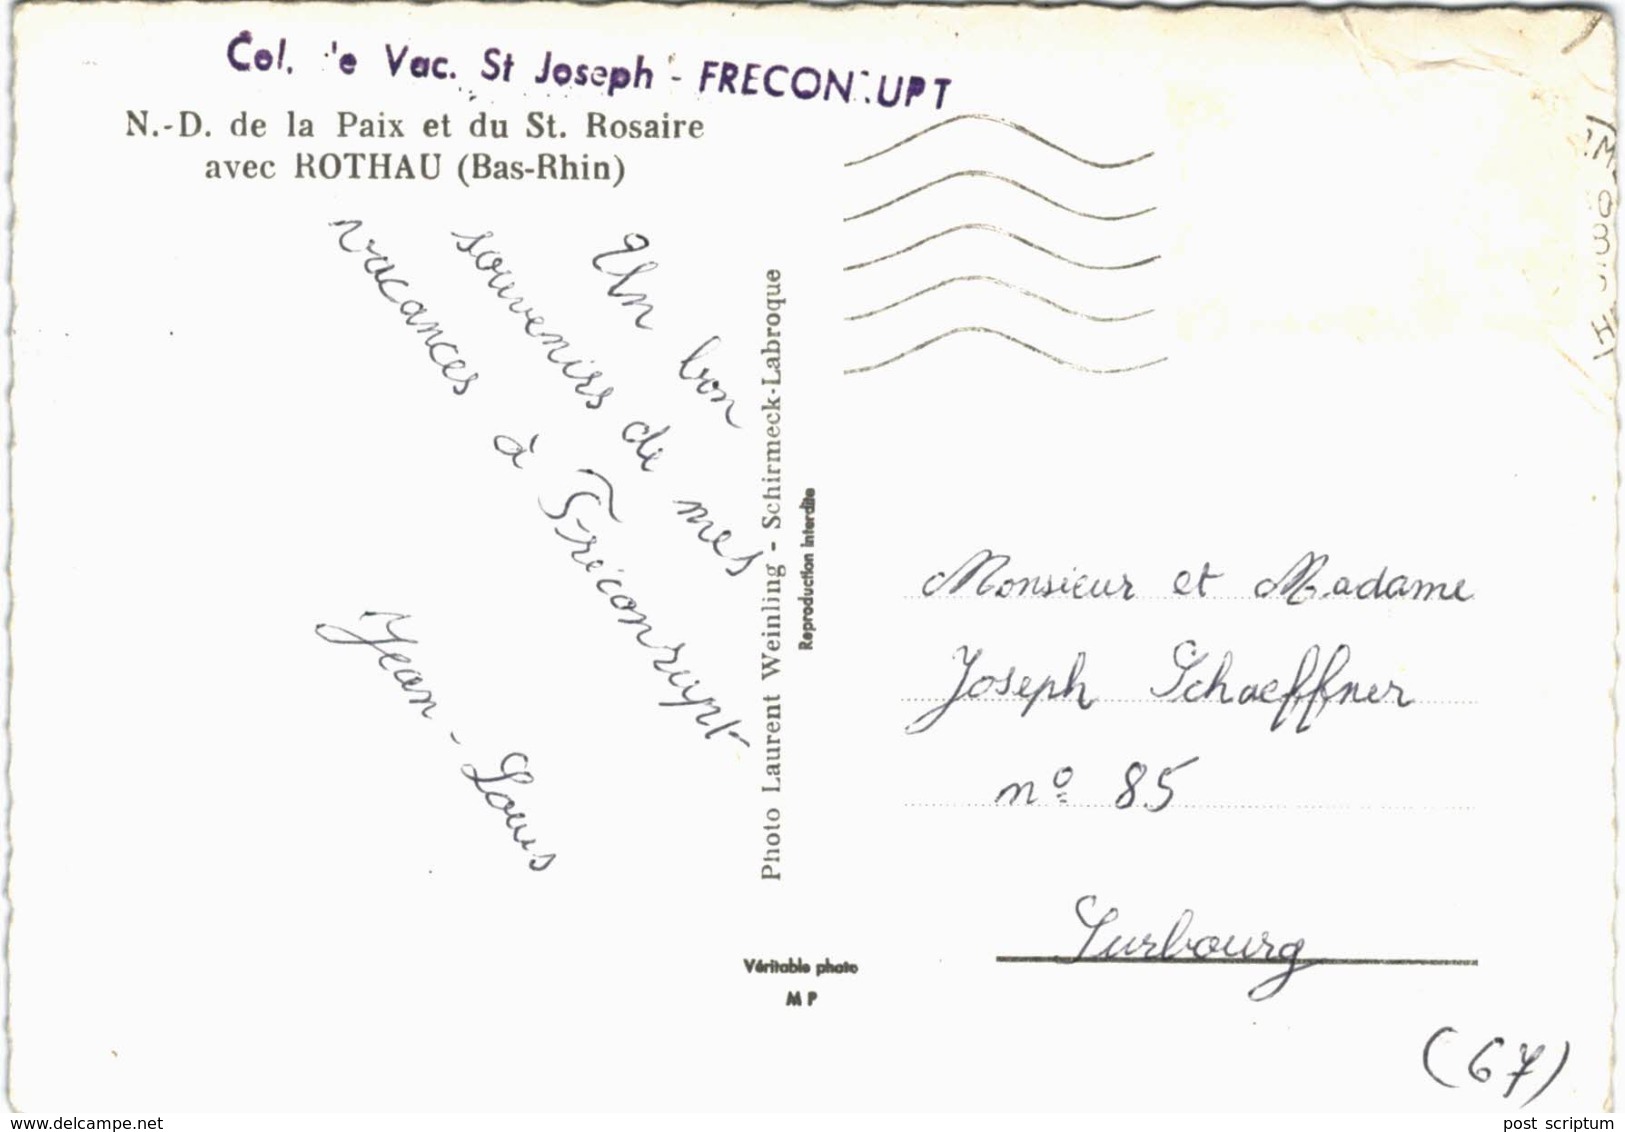 Col. 'e Vac. St Joseph - FRECON UPT
N.-D. de la Paix et du St. Rosaire
avec ROTHAU (Bas-Rhin)
Un bon
souvenirs de mes
vacances à Fréconrupt
Jean-Louis
Photo Laurent Weinling - Schirmeck-Labroque
Reproduction interdite
Véritable photo
M P
Monsieur et Madame
Joseph Schaeffner
nº 85
Surbourg
(67)
www.delcampe.net
post scriptum